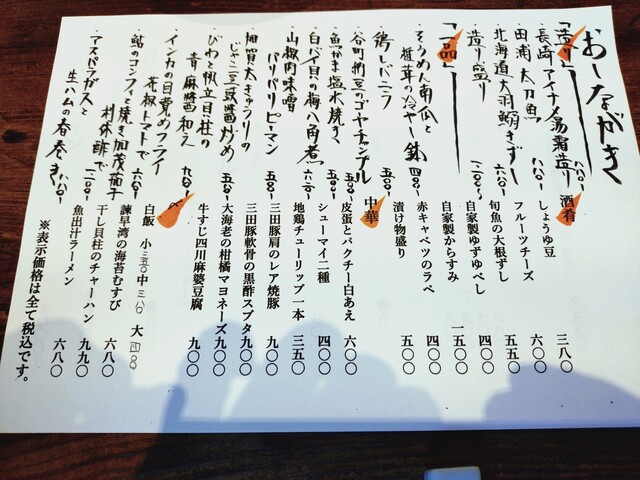 おしながき
「造り」
・長崎アイナメ湯霜造り 八八〇-
・田浦太刀魚 八八〇-
・北海道大羽鰯きずし 六八〇-
・造り盛り
「一品」
・そうめん南瓜と
椎茸の冷やし鉢 四八〇-
・鶏レバニラ
・谷町納豆のゴヤチャンプル 五八〇-
・魚かま塩水焼く
・白バイ貝の梅八角煮 六二〇-
・山椒肉味噌
パリパリピーマン 五八〇-
・加賀太きゅうりの
じゃこ豆豉醬炒め 五八〇-
・びわと帆立貝柱の
青麻醬和え 九八〇-
・インカの目覚めフライ
花椒トマトで 六八〇-
・鮎のコンフィと焼き加茂茄子
利休酢で 一二八〇-
・アスパラガスと
生ハムの春巻き 八八〇-
酒肴
しょうゆ豆 三八〇
フルーツチーズ 六〇〇
旬魚の大根ずし 五五〇
自家製ゆずゆべし 四〇〇
自家製からすみ 一五〇〇
赤キャベツのラペ 四〇〇
漬け物盛り 五〇〇
中華
皮蛋とパクチー白あえ 六〇〇
シューマイ二種 四〇〇
地鶏チューリップ一本 三五〇
三田豚肩のレア焼豚 九〇〇
三田豚軟骨の黒酢スブタ 九〇〇
大海老の柑橘マヨネーズ 九〇〇
牛すじ四川麻婆豆腐 九〇〇
〆
白飯 小 三五〇 中 三八〇 大 四〇〇
諫早湾の海苔むすび 六八〇
干し貝柱のチャーハン 九九〇
魚出汁ラーメン 六八〇
※表示価格は全て税込です。